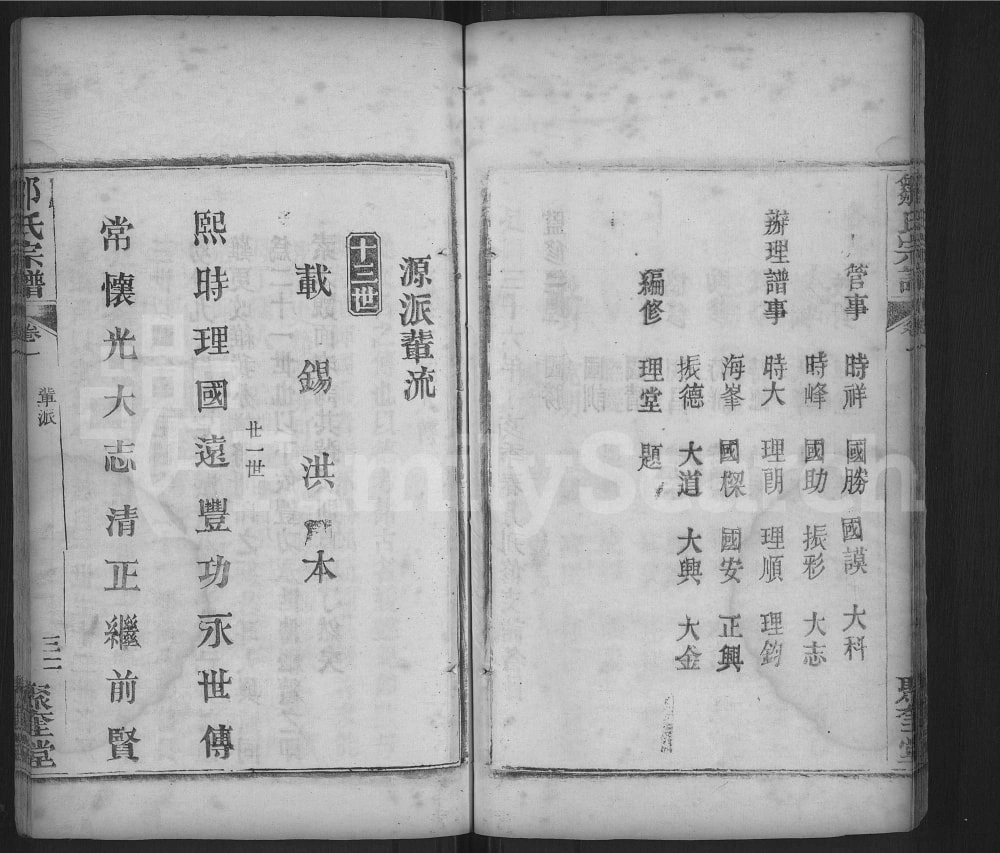 鄒氏宗譜
卷一
聚奎堂
管事 時祥 國勝 國謨 大科
時峰 國助 振彩 大志
辦理譜事 時大 理朗 理順 理鈞
海峯 國樑 國安 正興
振德 大道 大興 大金
編修 理堂 題
源派輩流
十三世
載錫洪 本
廿一世
熙時理國遠豐功永世傳
常懷光大志清正繼前賢
氏宗譜
卷一
輩派
三二
聚奎堂
FamilySearch